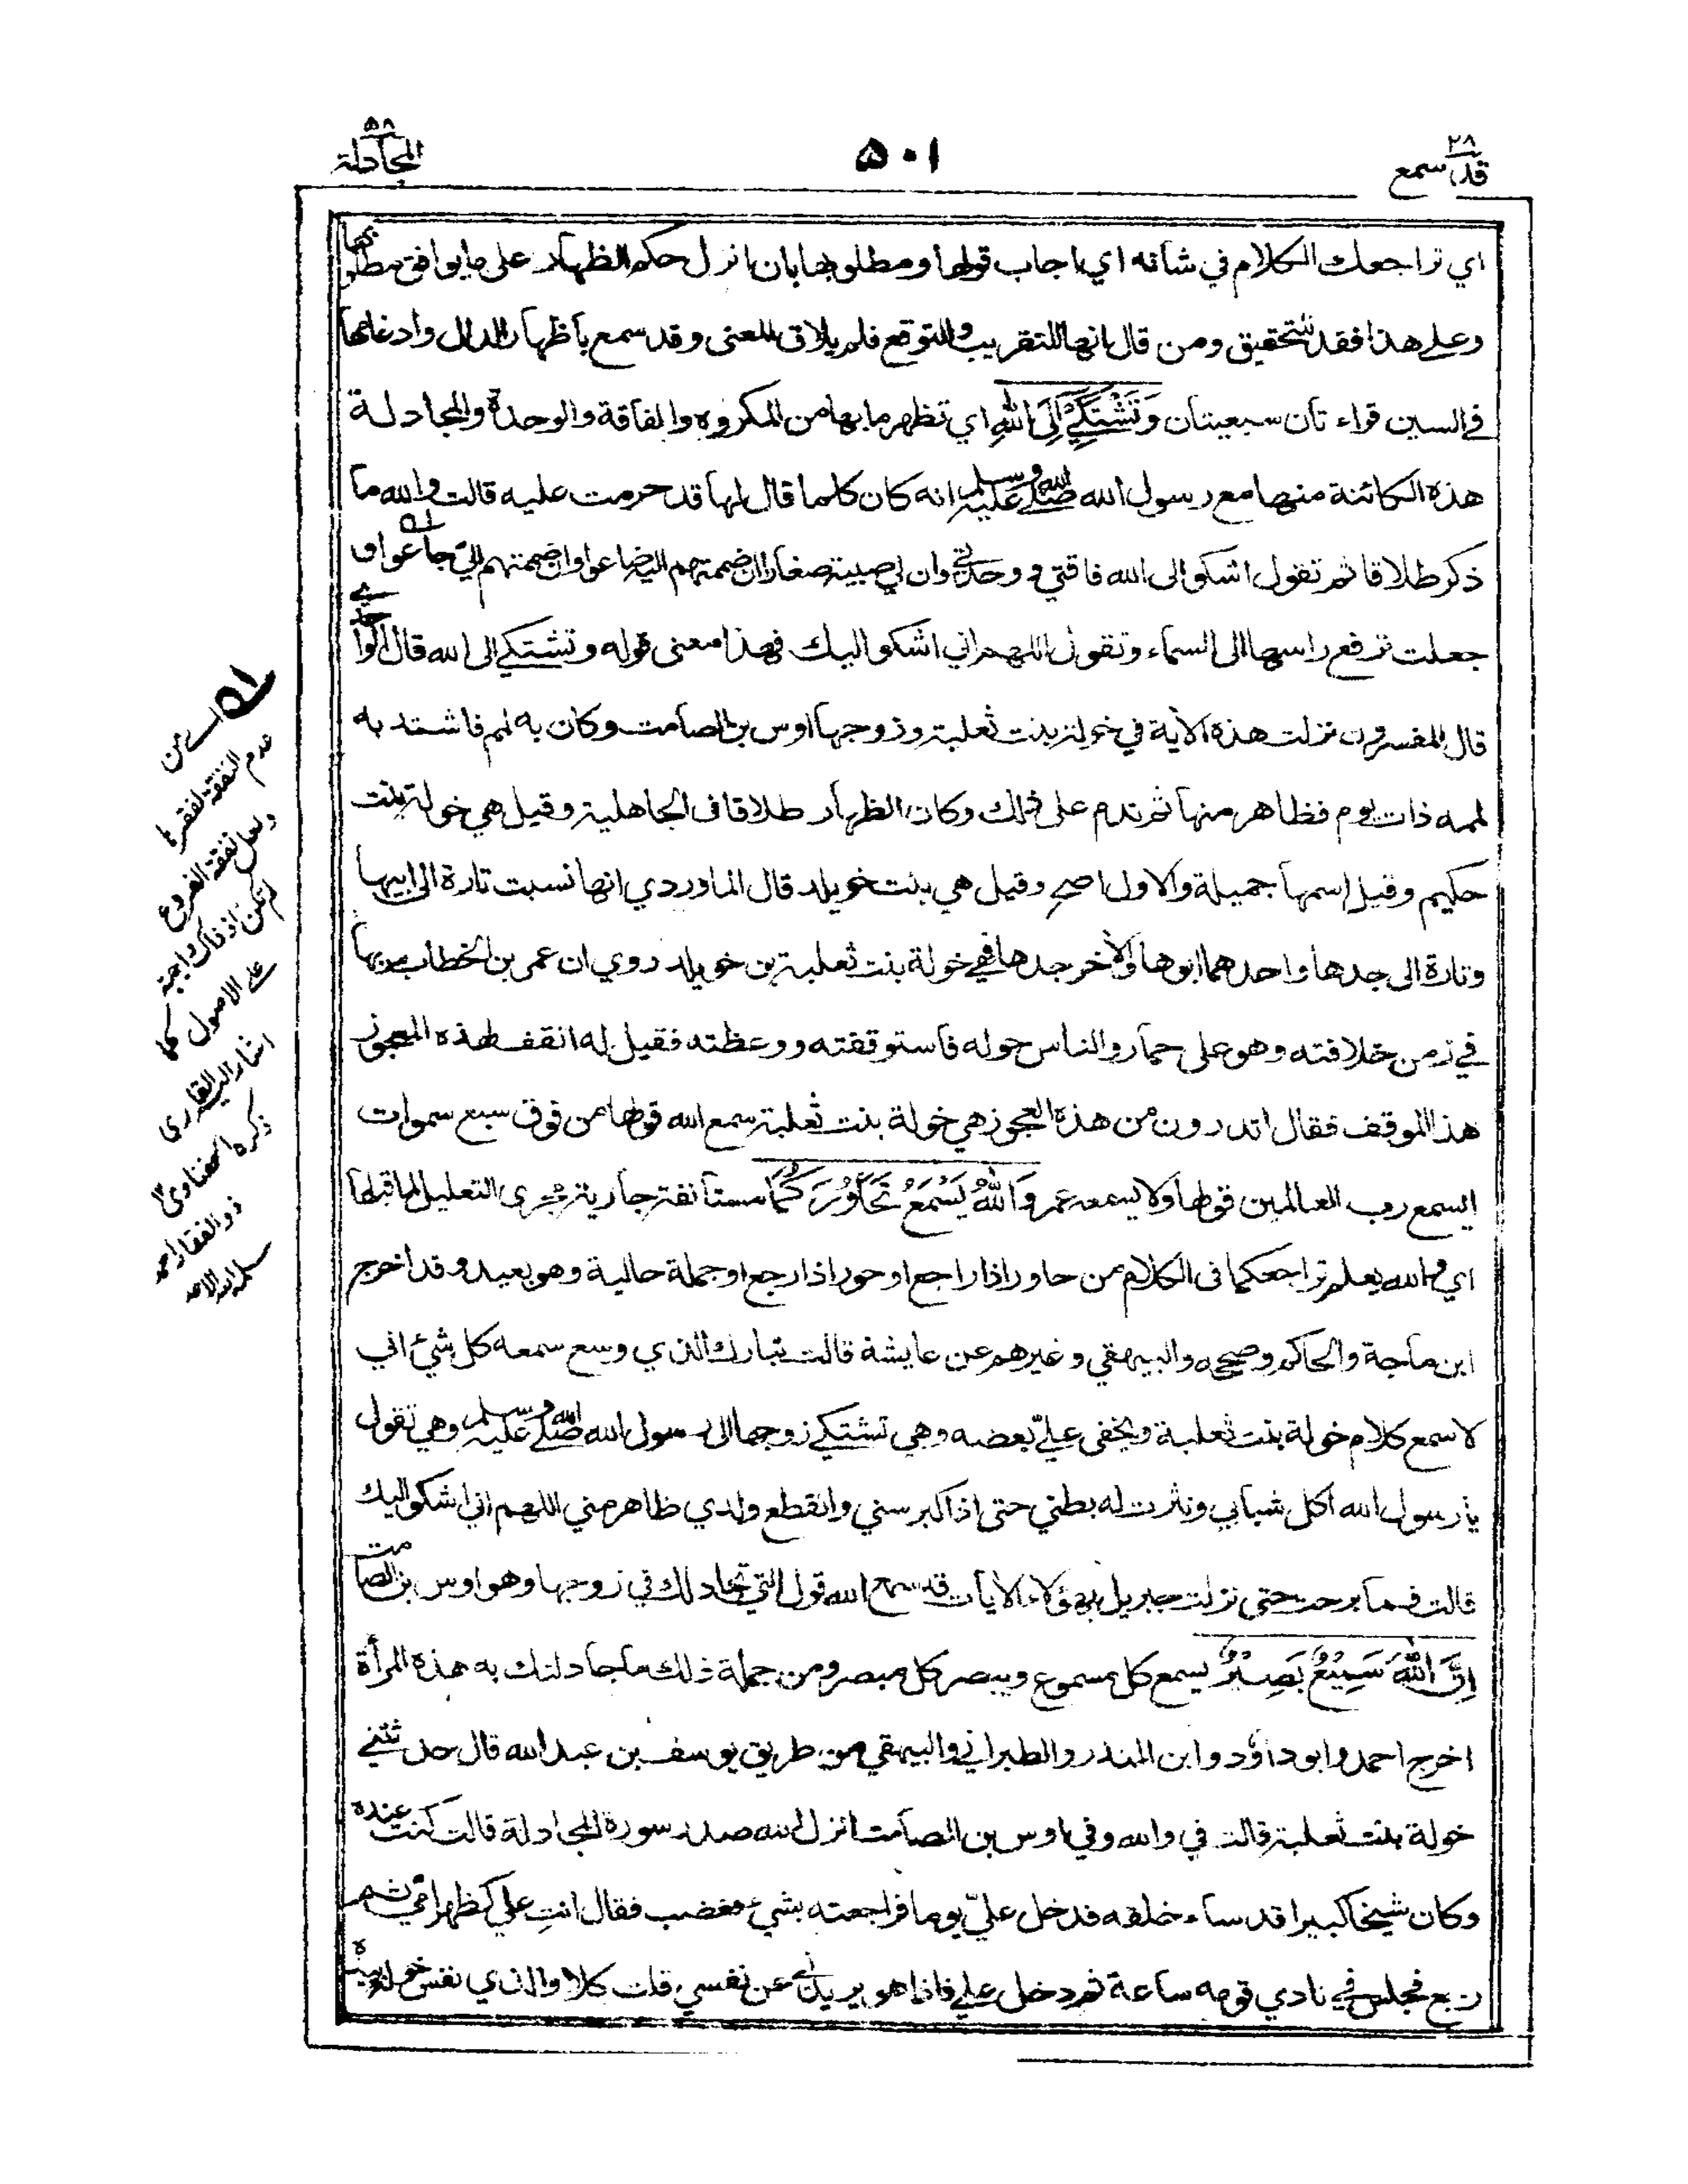 ٢٨
قد سمع
٥٠١
٥٨
المجادلة
اي تراجعك الكلام في شانه اي اجاب قولها ومطلوبها بان انزل حكم الظهار على ما يوافق مطلوبها
وعلى هذا فقد للتحقيق ومن قال انها للتقريب والتوقع فلم يلاق المعنى وقد سمع باظهار الدال وادغامها
في السين قراءتان سبعيتان وَتَشْتَكِيْ إِلَى اللهِ اي تظهر ما بها من المكروه والفاقة والوحدة والمجادلة
هذه الكائنة منها مع رسول الله صلى الله عليه وسلم انه كان كلما قال لها قد حرمت عليه قالت والله ما
ذكر طلاقا ثم تقول اشكو الى الله فاقتي ووحدتي وان لي صبية صغارا ان ضممتهم اليه ضاعوا وان ضممتهم الي جاعوا ف
جعلت ترفع راسها الى السماء وتقول اللهم اني اشكو اليك فهذا معنى قوله وتشتكي الى الله قال الواحدي
قال المفسرون نزلت هذه الآية في خولة بنت ثعلبة وزوجها اوس بن الصامت وكان به لمم فاشتد به
لممه ذات يوم فظاهر منها ثم ندم على ذلك وكان الظهار طلاقا في الجاهلية وقيل هي خولة بنت
حكيم وقيل اسمها جميلة والاول اصح وقيل هي بنت خويلد قال الماوردي انها نسبت تارة الى ابيها
وتارة الى جدها واحدهما ابوها والآخر جدها فهي خولة بنت ثعلبة بن خويلد روي ان عمر بن الخطاب مر بها
في زمن خلافته وهو على حمار والناس حوله فاستوقفته ووعظته فقيل له اتقف لهذه العجوز
هذا الموقف فقال اتدرون من هذه العجوز هي خولة بنت ثعلبة سمع الله قولها من فوق سبع سموات
ايسمع رب العالمين قولها ولا يسمعه عمر وَاللهُ يَسْمَعُ تَحَاوُرَكُمَا مستانفة جارية مجرى التعليل لما قبلها
اي والله يعلم تراجعكما في الكلام من حاور اذا راجع او حور اذا رجع او جملة حالية وهو بعيد وقد اخرج
ابن ماجة والحاكم وصححه والبيهقي وغيرهم عن عايشة قالت تبارك الذي وسع سمعه كل شيء اني
لاسمع كلام خولة بنت ثعلبة ويخفى عليّ بعضه وهي تشتكي زوجها الى رسول الله صلى الله عليه وسلم وهي تقول
يا رسول الله اكل شبابي ونثرت له بطني حتى اذا كبر سني وانقطع ولدي ظاهر مني اللهم اني اشكو اليك
قالت فما برحت حتى نزلت جبريل بهؤلاء الآيات قد سمع الله قول التي تجادلك في زوجها وهو اوس بن الصامت
اِنَّ اللهَ سَمِيْعٌ بَصِيْرٌ يسمع كل مسموع ويبصر كل مبصر ومن جملة ذلك ما جادلتك به هذه المرأة
اخرج احمد وابو داؤد وابن المنذر والطبراني والبيهقي من طريق يوسف بن عبد الله قال حدثتني
خولة بنت ثعلبة قالت في والله وفي اوس بن الصامت انزل الله صدر سورة المجادلة قالت كنت عنده
وكان شيخا كبيرا قد ساء خلقه فدخل عليّ يوما فراجعته بشيء فغضب فقال انتِ علي كظهر امي ثم
رجع فجلس في نادي قومه ساعة ثم دخل علي فاذا هو يريدني عن نفسي قلت كلا والذي نفس خولة بيده
اے من
عدم النفقة لفقرها
ولعل نفقة الفروع
لم تكن اذ ذاك واجبة
على الاصول كما
اشار اليه القاري
ذكره الحفناوي
ذو الفقار احمد
سلمه الله الاحد